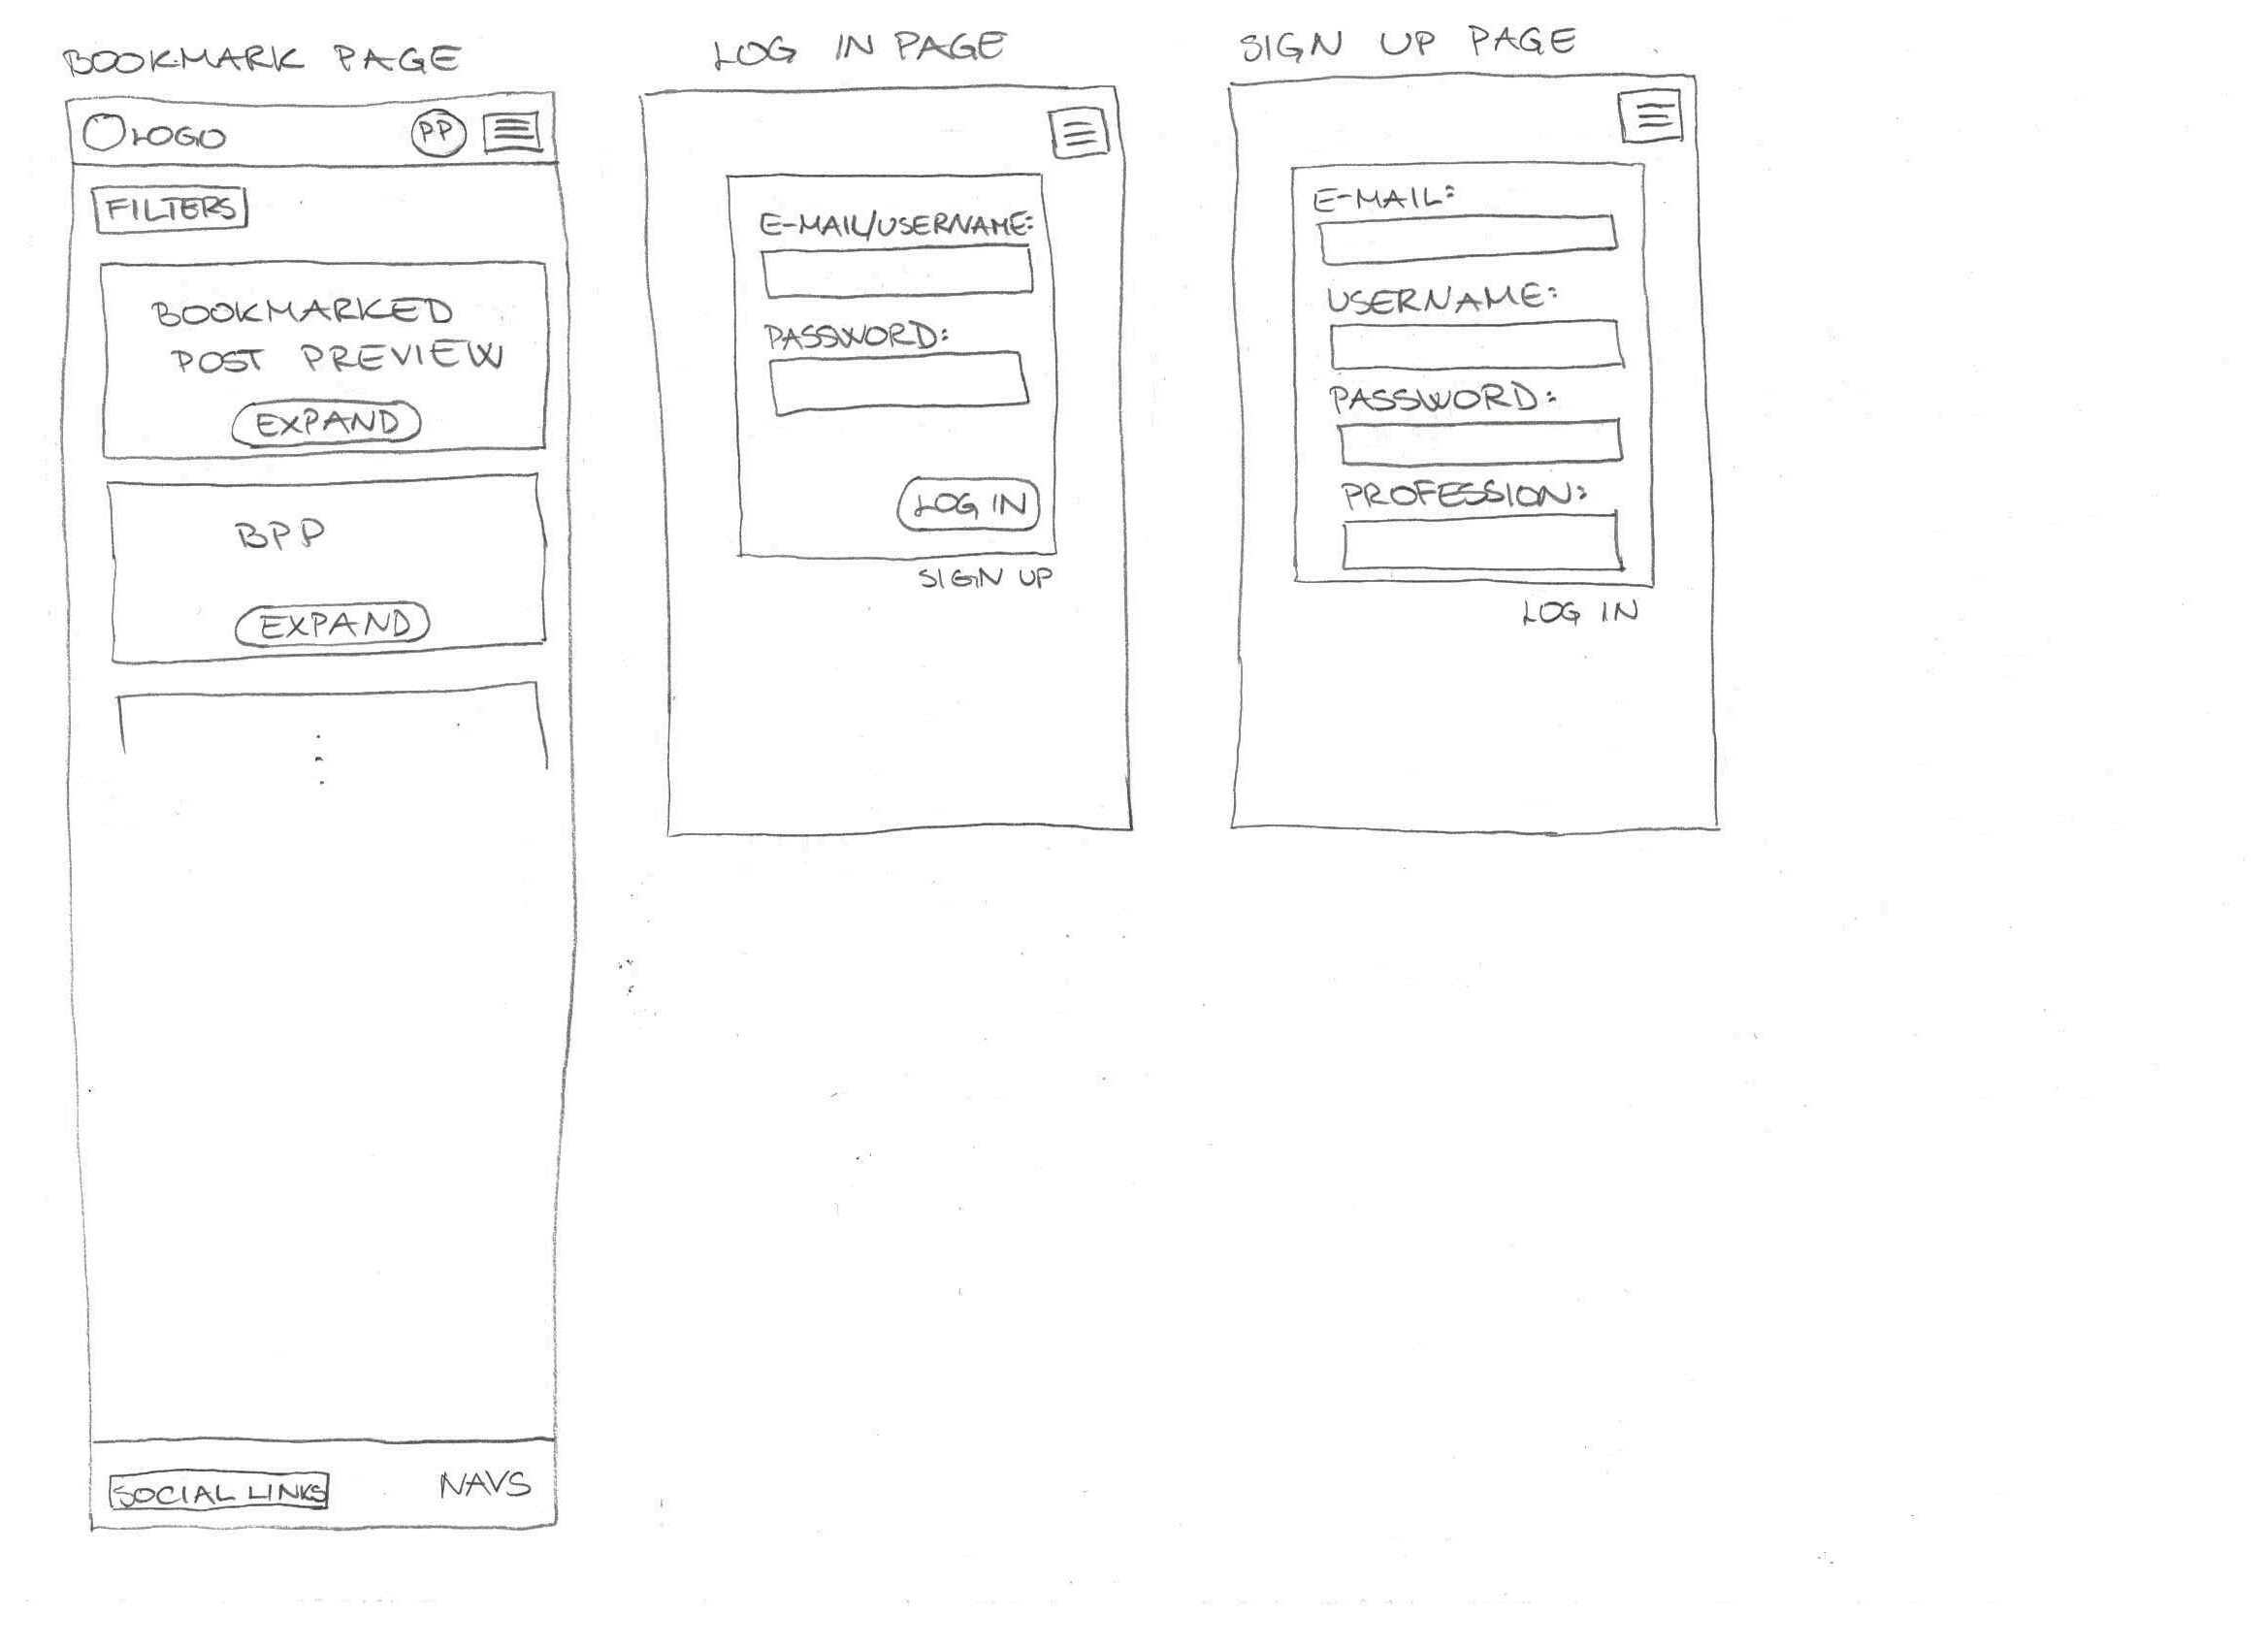 BOOKMARK PAGE
LOGO
PP
FILTERS
BOOKMARKED
POST PREVIEW
EXPAND
BPP
EXPAND
SOCIAL LINKS
NAVS
LOG IN PAGE
E-MAIL/USERNAME:
PASSWORD:
LOG IN
SIGN UP
SIGN UP PAGE
E-MAIL:
USERNAME:
PASSWORD:
PROFESSION:
LOG IN